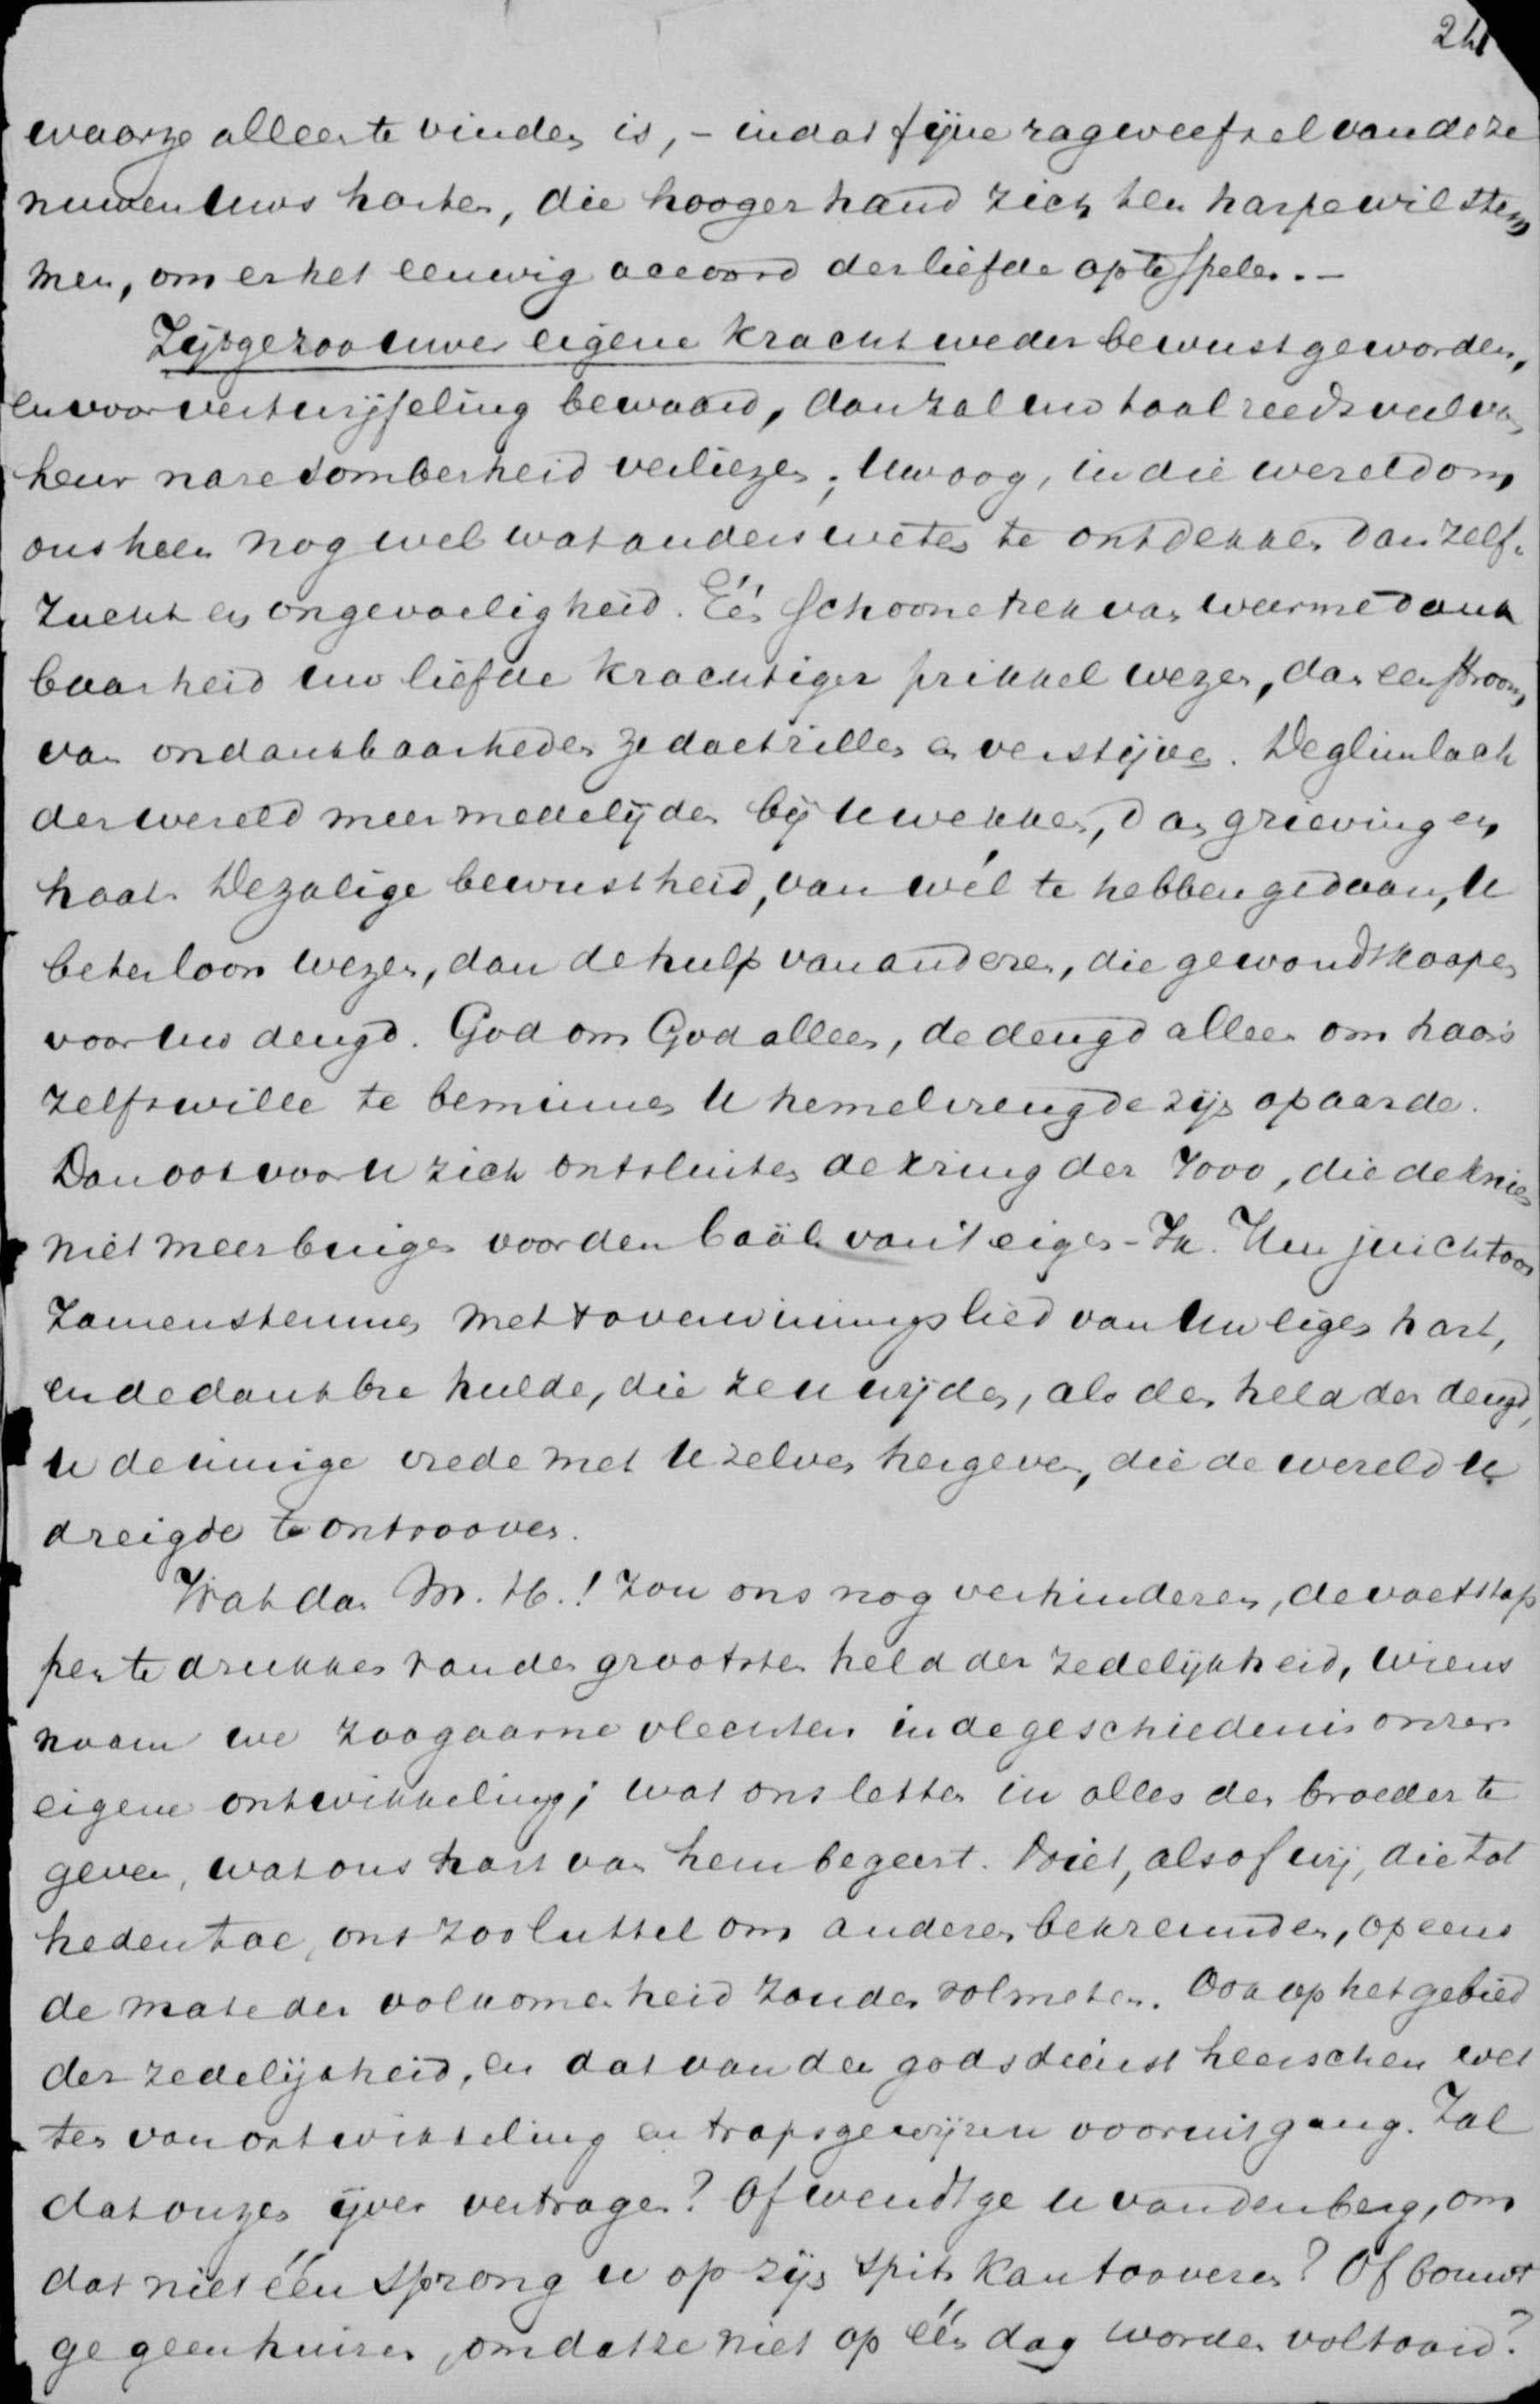 24
waar ze alleen te vinden is, – in dat fijne ragweefsel van de ze
nuwen uws harten, die hooger hand zich ten harpe wil stem
men, om er het eeuwig accoord der liefde op te spelen. –
Zijt ge zoo uwer eigene kracht weder bewust geworden,
en voor vertwijfeling bewaard, dan zal uw taal reeds veel van
heur nare somberheid verliezen; Uw oog, in die wereld om
ons heen nog wel wat anders weten te ontdekken dan zelf-
zucht en ongevoeligheid. Eén schoone trek van warme dank
baarheid uw liefde krachtiger prikkel wezen, dan een stroom
van ondankbaarheden ze doet rillen en verstijven. De glimlach
der wereld meer medelijden bij U wekken, dan grieving en
haat. De zalige bewustheid, van wél te hebben gedaan, U
beter loon wezen, dan de hulp van anderen, die ge wondt koopen
voor uw deugd. God om God alleen, de deugd alleen om haars
zelfs wille te beminnen U hemelvreugde zijn op aarde.
Dan ook voor U zich ontsluiten de kring der 7000, die de knieën
niet meer buigen voor den baäl van 't eigen-Ik. Hun juichtoon
zamenstemmen met 't overwinningslied van Uw eigen hart,
en de dankbre hulde, die ze u wijden, als den held der deugd,
U de innige vrede met U zelven hergeven, die de wereld U
dreigde te ontrooven.
Wat dan M. H.! zou ons nog verhinderen, de voetstap
pen te drukken van den grootsten held der zedelijkheid, wiens
naam we zoo gaarne vlechten in de geschiedenis onzer
eigene ontwikkeling; wat ons letten in alles den broeder te
geven, wat ons hart van hem begeert. Niet, alsof wij, die tot
heden toe, ons zoo luttel om anderen bekreunden, opeens
de mate der volkomenheid zouden volmeten. Ook op het gebied
der zedelijkheid, en dat van den godsdienst heerschen wet
ten van ontwikkeling en trapsgewijzen vooruitgang. Zal
dat onzen ijver vertragen? Of wendt ge u van den berg, om
dat niet één sprong u op zijn spits kan tooveren? Of bouwt
ge geen huizen, omdat ze niet op één dag worden voltooid?